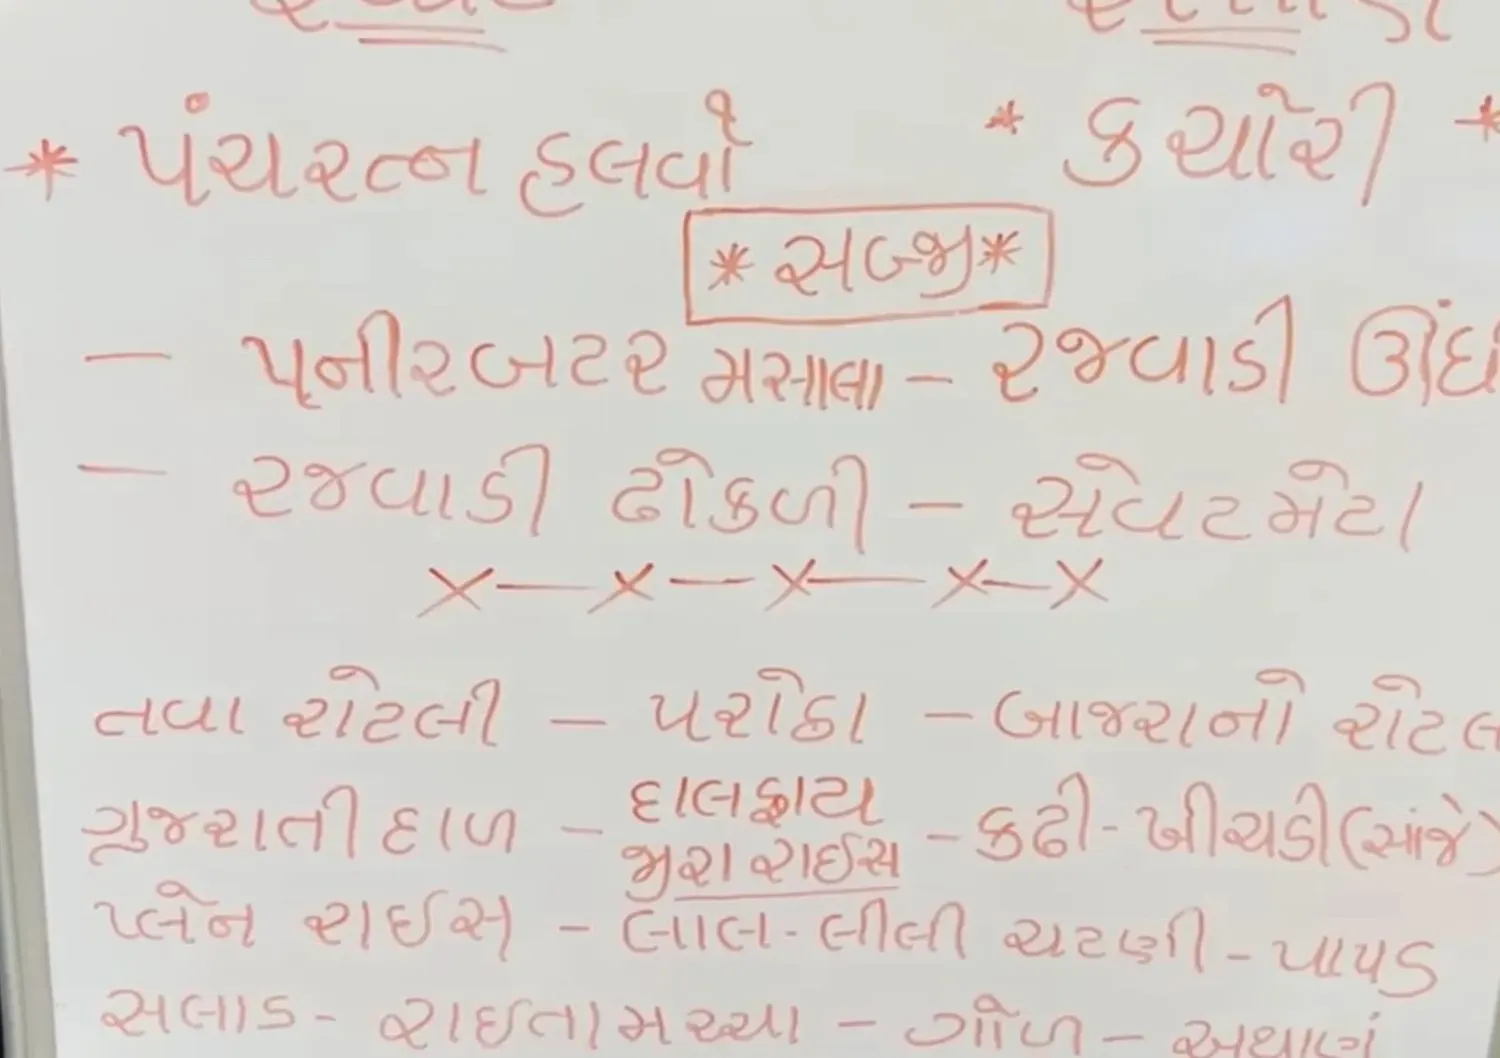 * પંચરત્ન હલવો * કચોરી *
* સબ્જી *
— પનીર બટર મસાલા — રજવાડી
— રજવાડી ઢોકળી — સેવટમેટા
x — x — x — x — x
તવા રોટલી — પરોઠા — બાજરાનો
ગુજરાતી દાળ — દાલફ્રાય જીરા રાઈસ — કઢી - ખીચડી (સાંજે)
પ્લેન રાઈસ — લાલ - લીલી ચટણી — પાપડ
સલાડ - રાઇતા મરચા — ગોળ — અથાણું